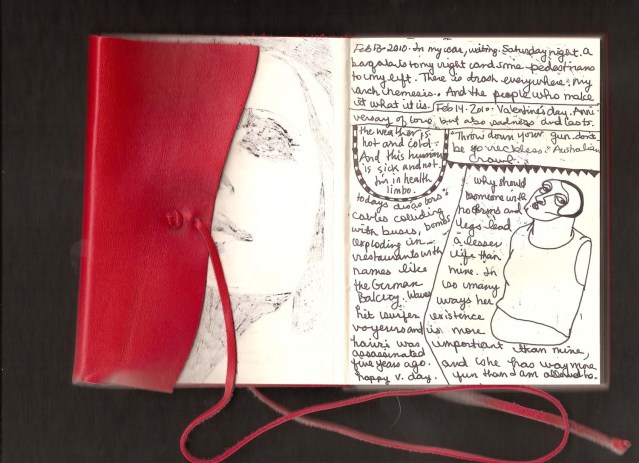 Feb 13 - 2010. In my car, writing. Saturday night. A
bagala to my right and some pedestrians
to my left. There is trash everywhere. My
arch nemesis. And the people who make
it what it is. Feb 14 - 2010. Valentine's day. Anni-
versary of love, but also sadness and lasts.
the weather is
hot and cold.
And this human
is sick and not.
him in health
limbo.
"Throw down your gun. don't
be so reckless." Australian
Crawl.
todays disasters:
cables colluding
with buses, bombs
exploding in
restaurants with
names like
the German
Bakery. Waves
hit surfer
voyeurs and
hairi was
assassinated
five years ago.
happy v. day.
why should
someone with
no arms and
legs lead
a lesser
life than
mine. In
so many
ways her
existence
is more
important than mine,
and she has way more
fun than I am allowed to.